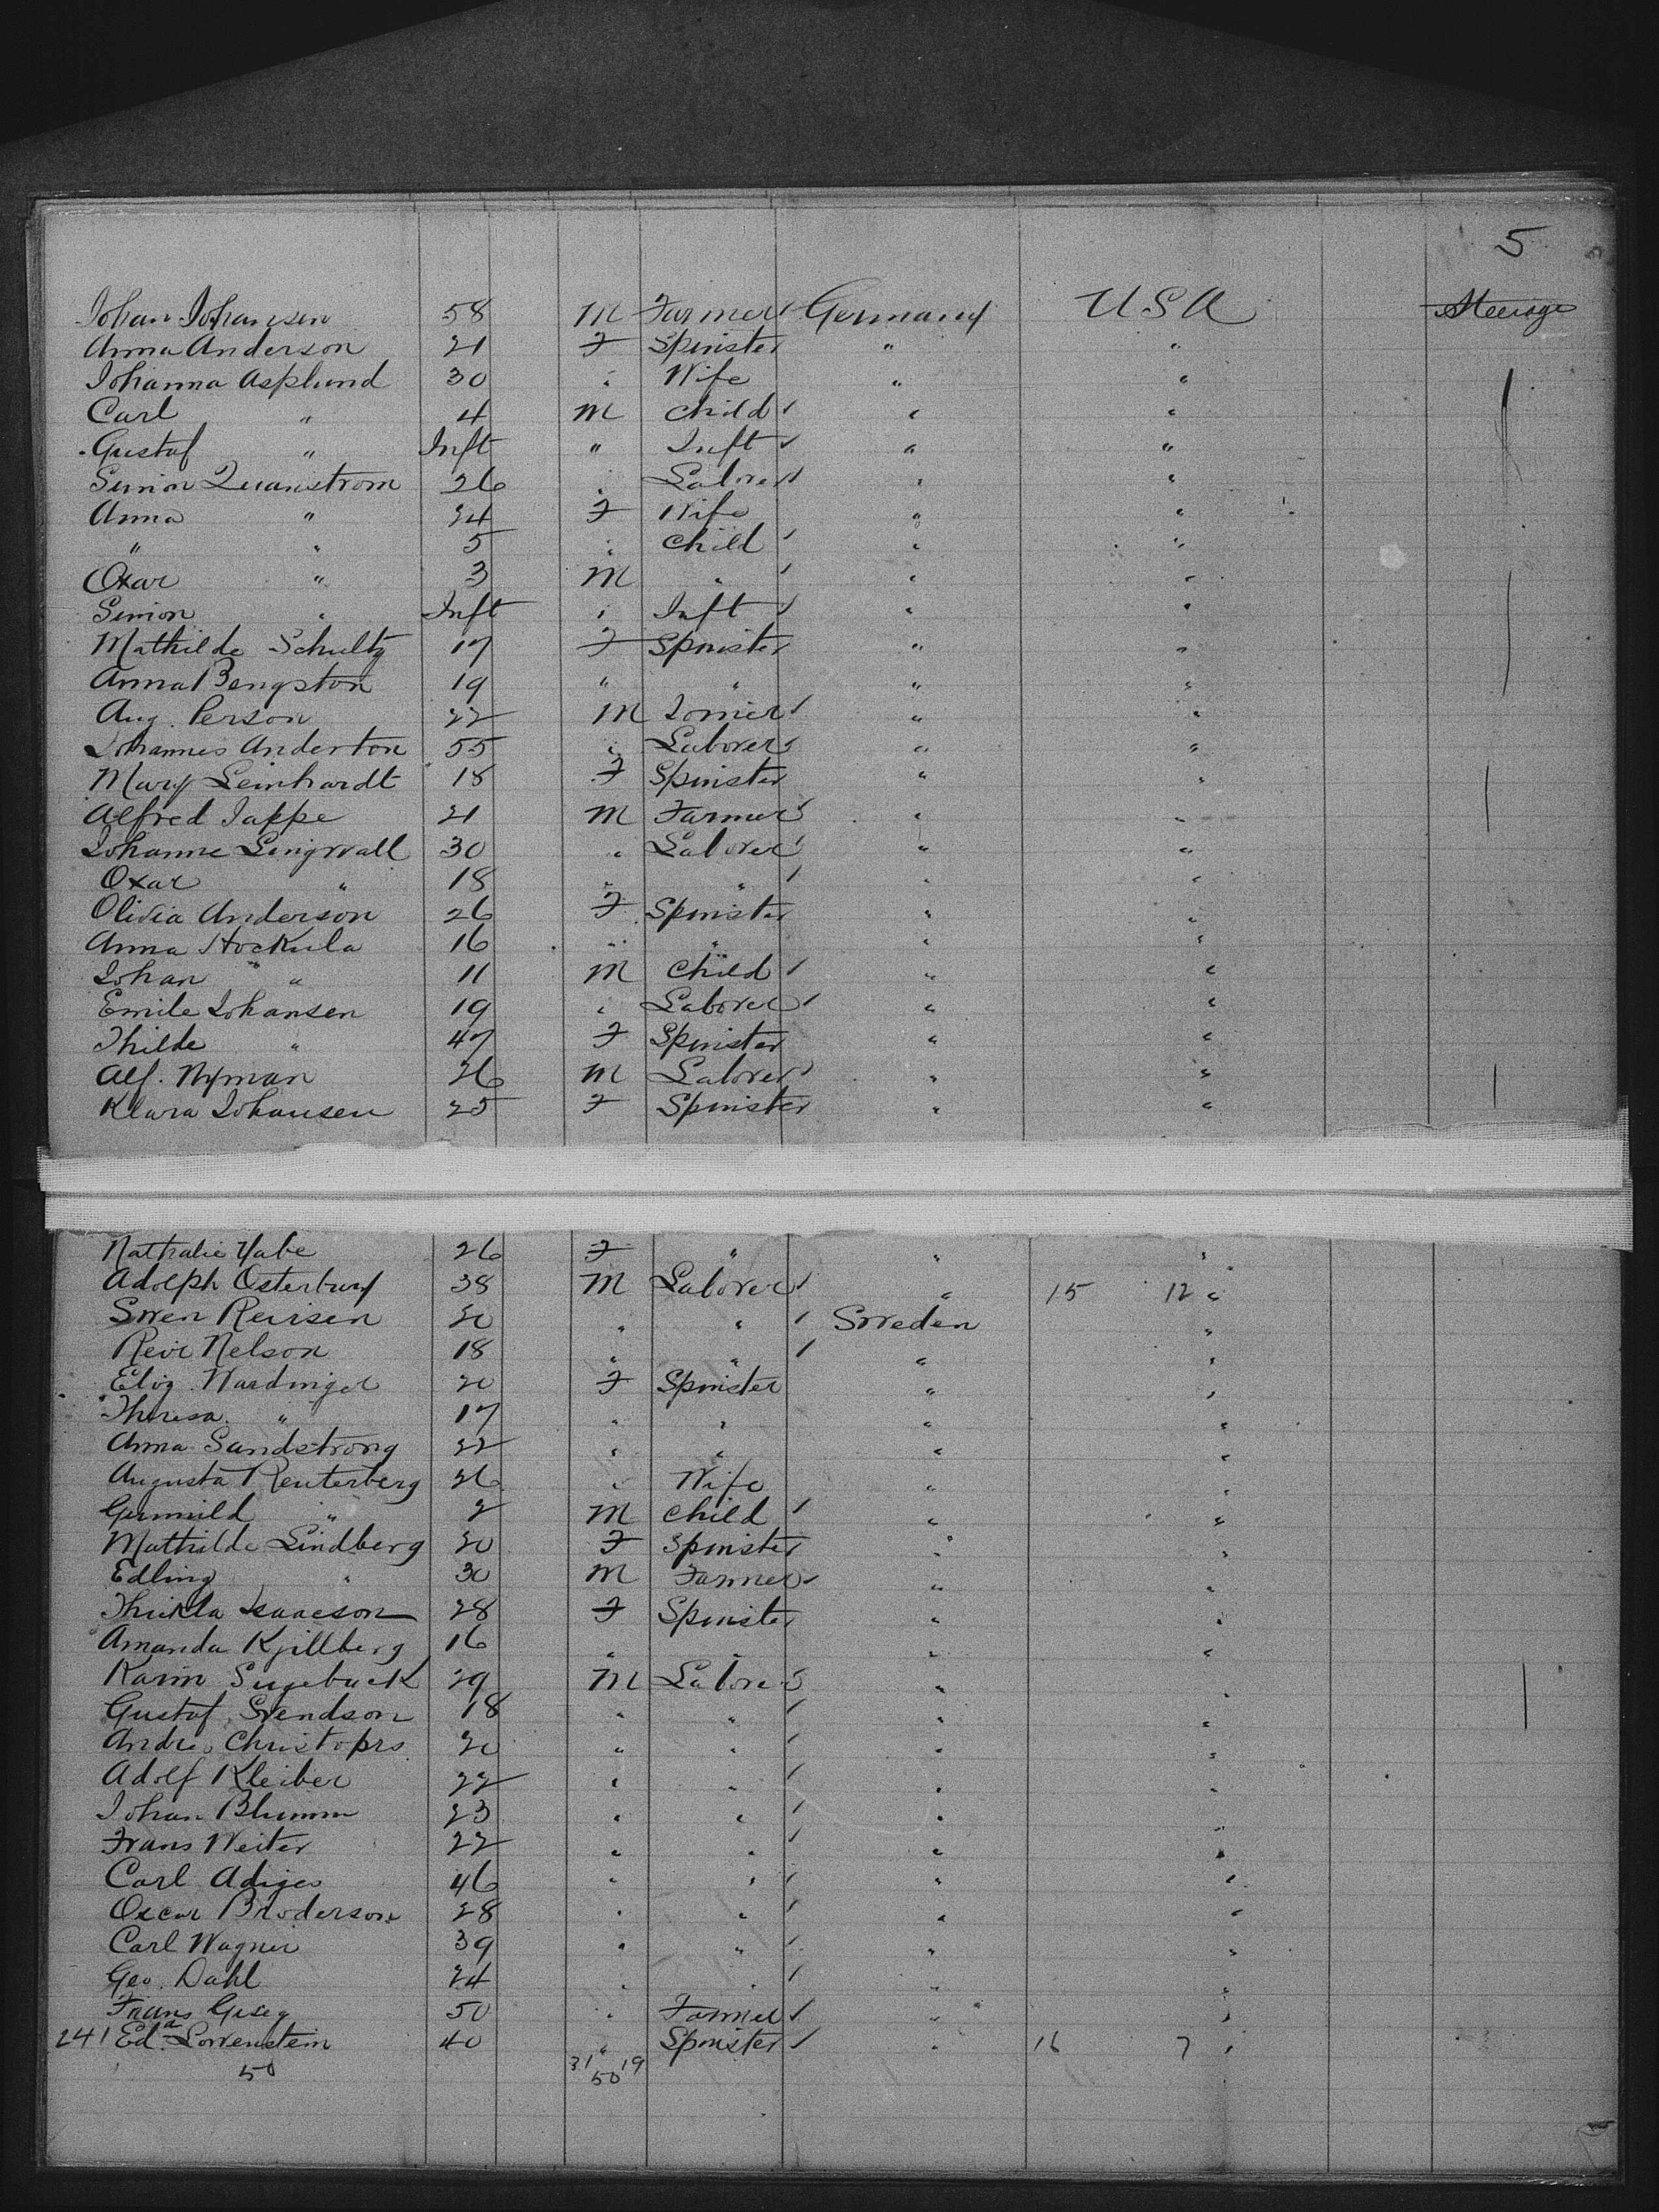 5
Johan Johansen 58 M Farmer Germany USA Steerage
Anna Anderson 21 F Spinster " "
Johanna Asplund 30 " Wife " "
Carl " 4 M Child " "
Gustaf " Inft " Inft " "
Simon Quanstrom 26 " Laborer " "
Anna " 24 F Wife " "
" " 5 " Child " "
Oxar " 3 M " " "
Simon " Inft " Inft " "
Mathilde Schultz 17 F Spinster " "
Anna Bengston 19 " " " "
Aug. Person 22 M " "
Johannes Anderton 55 " Laborer " "
Mary Leinhardt 18 F Spinster " "
Alfred Jappe 21 M Farmer " "
Johanne Lingwall 30 " Laborer " "
Oxar " 18 " " " "
Olivia Anderson 26 F Spinster " "
Anna Hockula 16 " " " "
Johan " 11 M Child " "
Emile Johansen 19 " Laborer " "
Thilde " 47 F Spinster " "
Alf. Nyman 26 M Laborer " "
Klara Johansen 25 F Spinster " "
Nathalie Yabe 26 F " " "
Adolph Osterburg 38 M Laborer " 15 12 "
Swen Reirsen 20 " " Sweden "
Reir Nelson 18 " " " "
Eliz. Wardinger 20 F Spinster " "
Theresa " 17 " " " "
Anna Sandstrong 22 " " " "
Augusta Reuterberg 26 " Wife " "
Gunnild " 2 M Child " "
Mathilde Lindberg 20 F Spinster " "
Edling " 30 M Farmer " "
Thickla Isaacson 28 F Spinster " "
Amanda Kjillberg 16 " " " "
Karin 29 M Laborer " "
Gustaf Svendson 18 " " " "
Andre Christoprs 20 " " " "
Adolf Kleiber 22 " " " "
Johan Blumm 23 " " " "
Frans Weiter 22 " " " "
Carl Adiges 46 " " " "
Oscar Broderson 28 " " " "
Carl Wagner 39 " " " "
Geo. Dahl 24 " " " "
Frans 50 " Farmer " "
241 Eda Lowenstein 40 " Spinster " 16 7 "
50 31 19
50